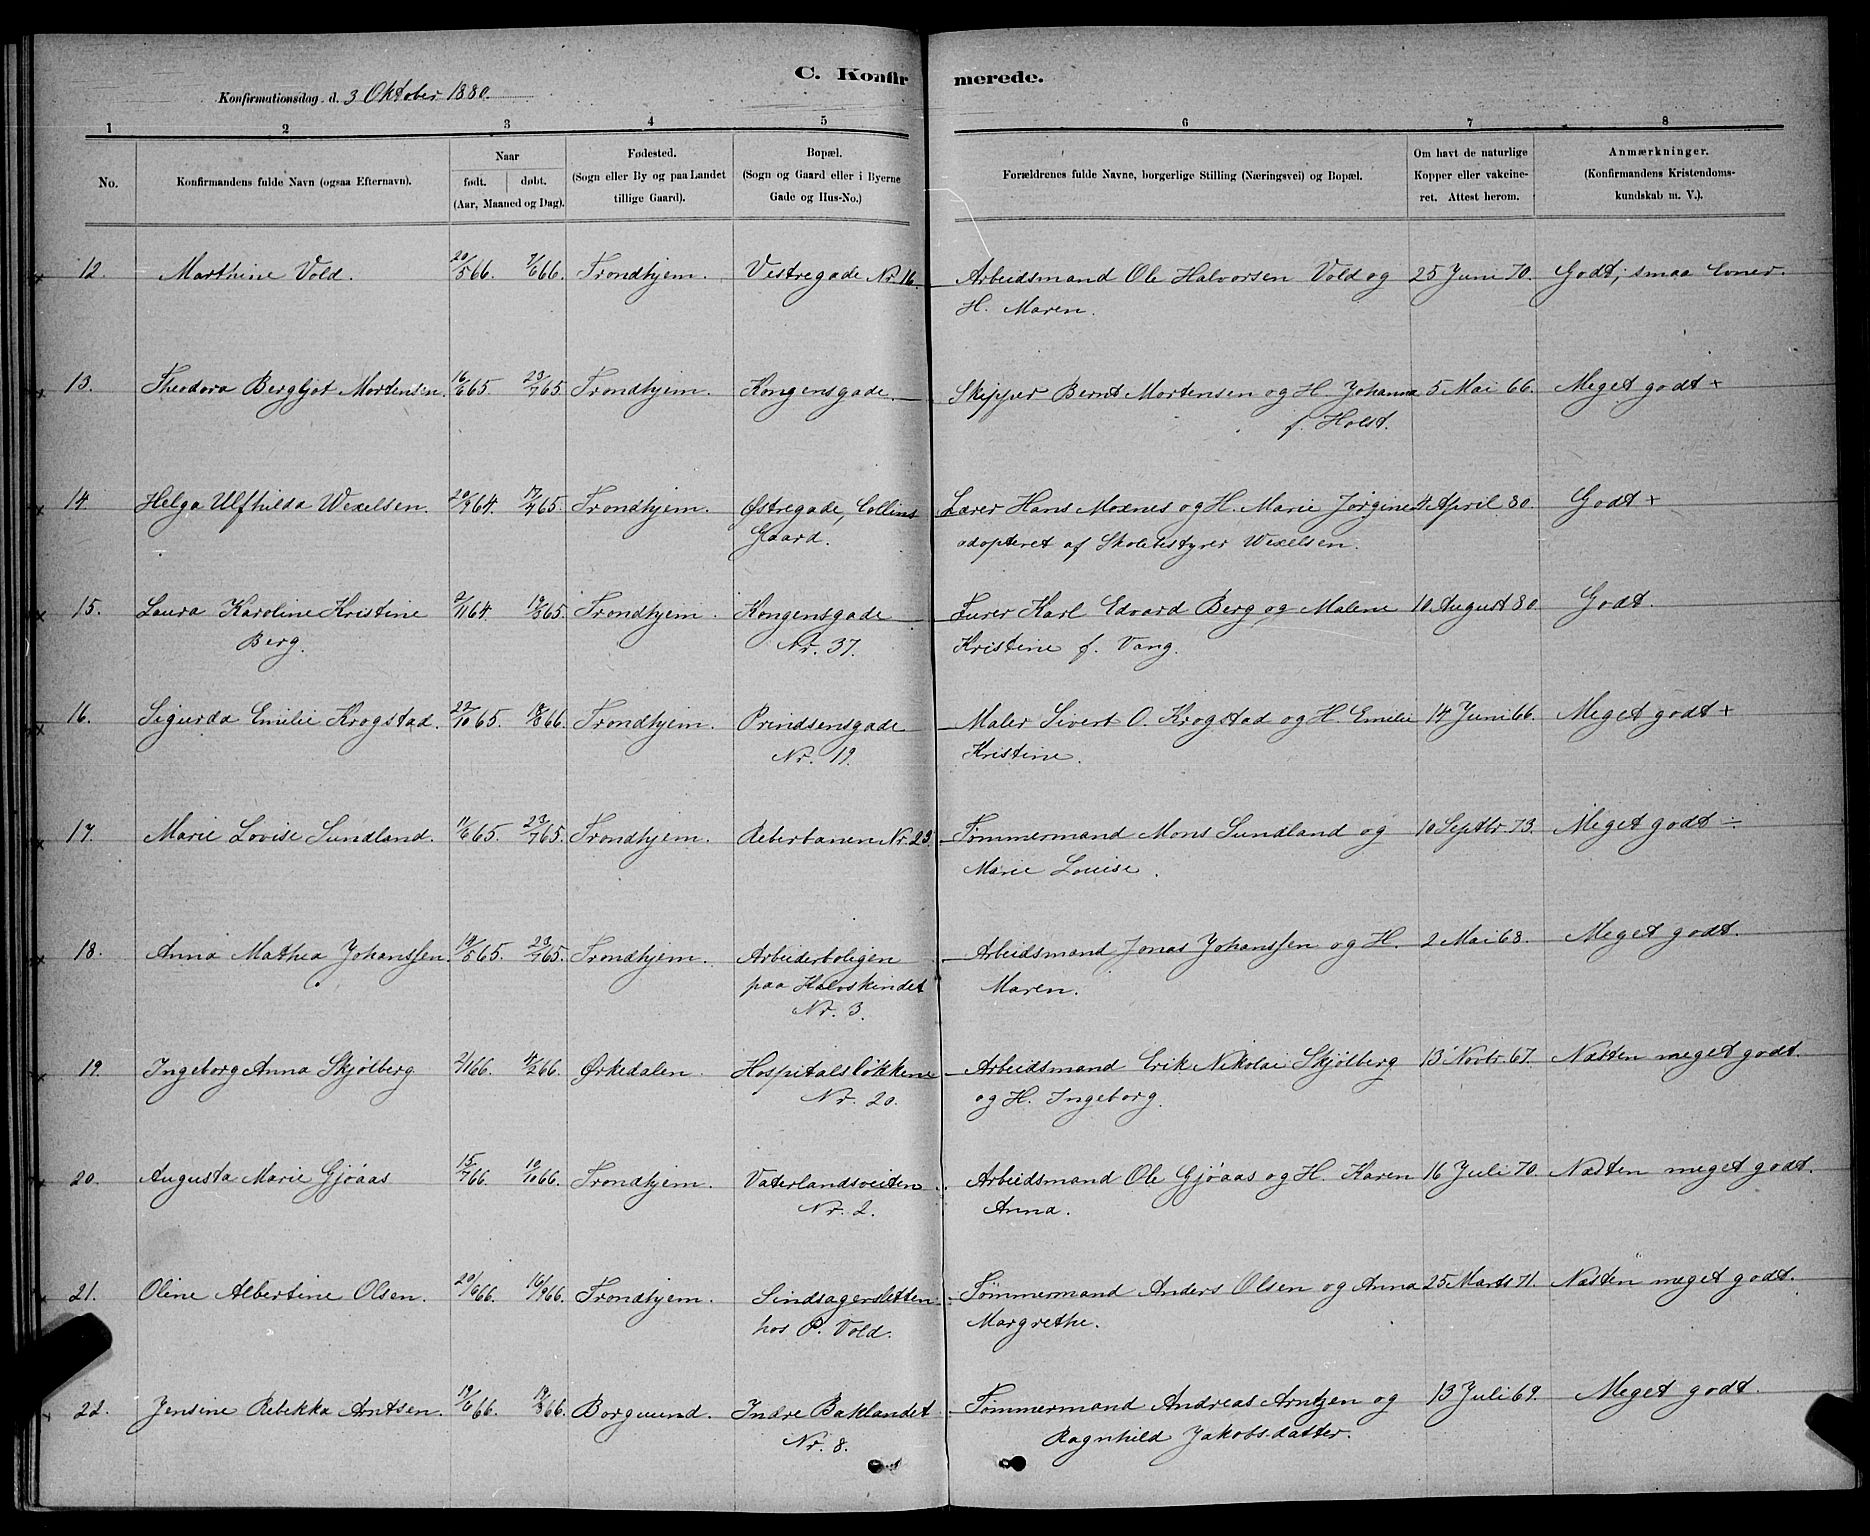 C. Konfirmerede.
Konfirmationsdag d. 3 Oktober 1880.
1 2 3 4 5 6 7 8
No. Konfirmandens fulde Navn (ogsaa Efternavn). Naar født. døbt. (Aar, Maaned og Dag). Fødested. (Sogn eller By og paa Landet tillige Gaard). Bopæl. (Sogn og Gaard eller i Byerne Gade og Hus-No.) Forældrenes fulde Navne, borgerlige Stilling (Næringsvei) og Bopæl. Om havt de naturlige Kopper eller vakcineret. Attest herom. Anmærkninger. (Konfirmandens Kristendomskundskab m. V.).
12. Marthine Vold. 20/5 66. 9/6 66. Trondhjem. Vestregade Nr. 16. Arbeidsmand Ole Halvorsen Vold og 25 Juni 70. Godt; smaa Evner.
H. Maren.
13. Theodora Bergljot Mortensen. 16/6 65. 23/7 65. Trondhjem. Kongensgade. Skipper Bernt Mortensen og H. Johanna 5 Mai 66. Meget godt +
f. Holst.
14. Helga Ulfhilda Wexelsen. 64. 65. Trondhjem. Østregade, Collins Lærer Hans Moxnes og H. Marie Jørgine 4 April 80. Godt +
Gaard. adopteret af Skolebestyrer Wexelsen.
15. Laura Karoline Kristine /11 64. 19/3 65. Trondhjem. Kongensgade Furer Karl Edvard Berg og Malene 10 August 80. Godt.
Berg. Nr. 37. Kristine f. Vang.
16. Sigurda Emilie Krogstad. 22/10 65. 66. Trondhjem. Prindsensgade Maler Sivert O. Krogstad og H. Emilie 14 Juni 66. Meget godt +
Nr. 19. Kristine.
17. Marie Lovise Sundland. 11/6 65. 23/7 65. Trondhjem. Reberbanen Nr. 23. Tømmermand Mons Sundland og 10 Septbr. 73. Meget godt ÷
Marie Louise.
18. Anna Mathea Johanssen. 14/5 65. 23/7 65. Trondhjem. Arbeiderboligen Arbeidsmand Jonas Johanssen og H. 2 Mai 68. Meget godt.
paa Kalvskindet Maren.
Nr. 3.
19. Ingeborg Anna Skjølberg 2/1 66. 4/2 66. Ørkedalen. Hospitalsløkkene Arbeidsmand Erik Nikolai Skjølberg 13 Novbr. 67. Næsten meget godt.
Nr. 20. og H. Ingeborg.
20. Augusta Marie Gjøaas 15/7 66. /10 66. Trondhjem. Vaterlandsveiten Arbeidsmand Ole Gjøaas og H. Karen 16 Juli 70. Næsten meget godt.
Nr. 2. Anna.
21. Oline Albertine Olsen. 20/6 66. 16/9 66. Trondhjem. Sindsagersletten Tømmermand Anders Olsen og Anna 25 Marts 71. Næsten meget godt.
hos P. Vold. Margrethe.
22. Jensine Rebekka Arntsen. 19/6 66. 19/8 66. Borgmund. Indre Baklandet Tømmermand Andreas Arntzen og 13 Juli 69. Meget godt.
Nr. 8. Ragnhild Jakobsdatter.